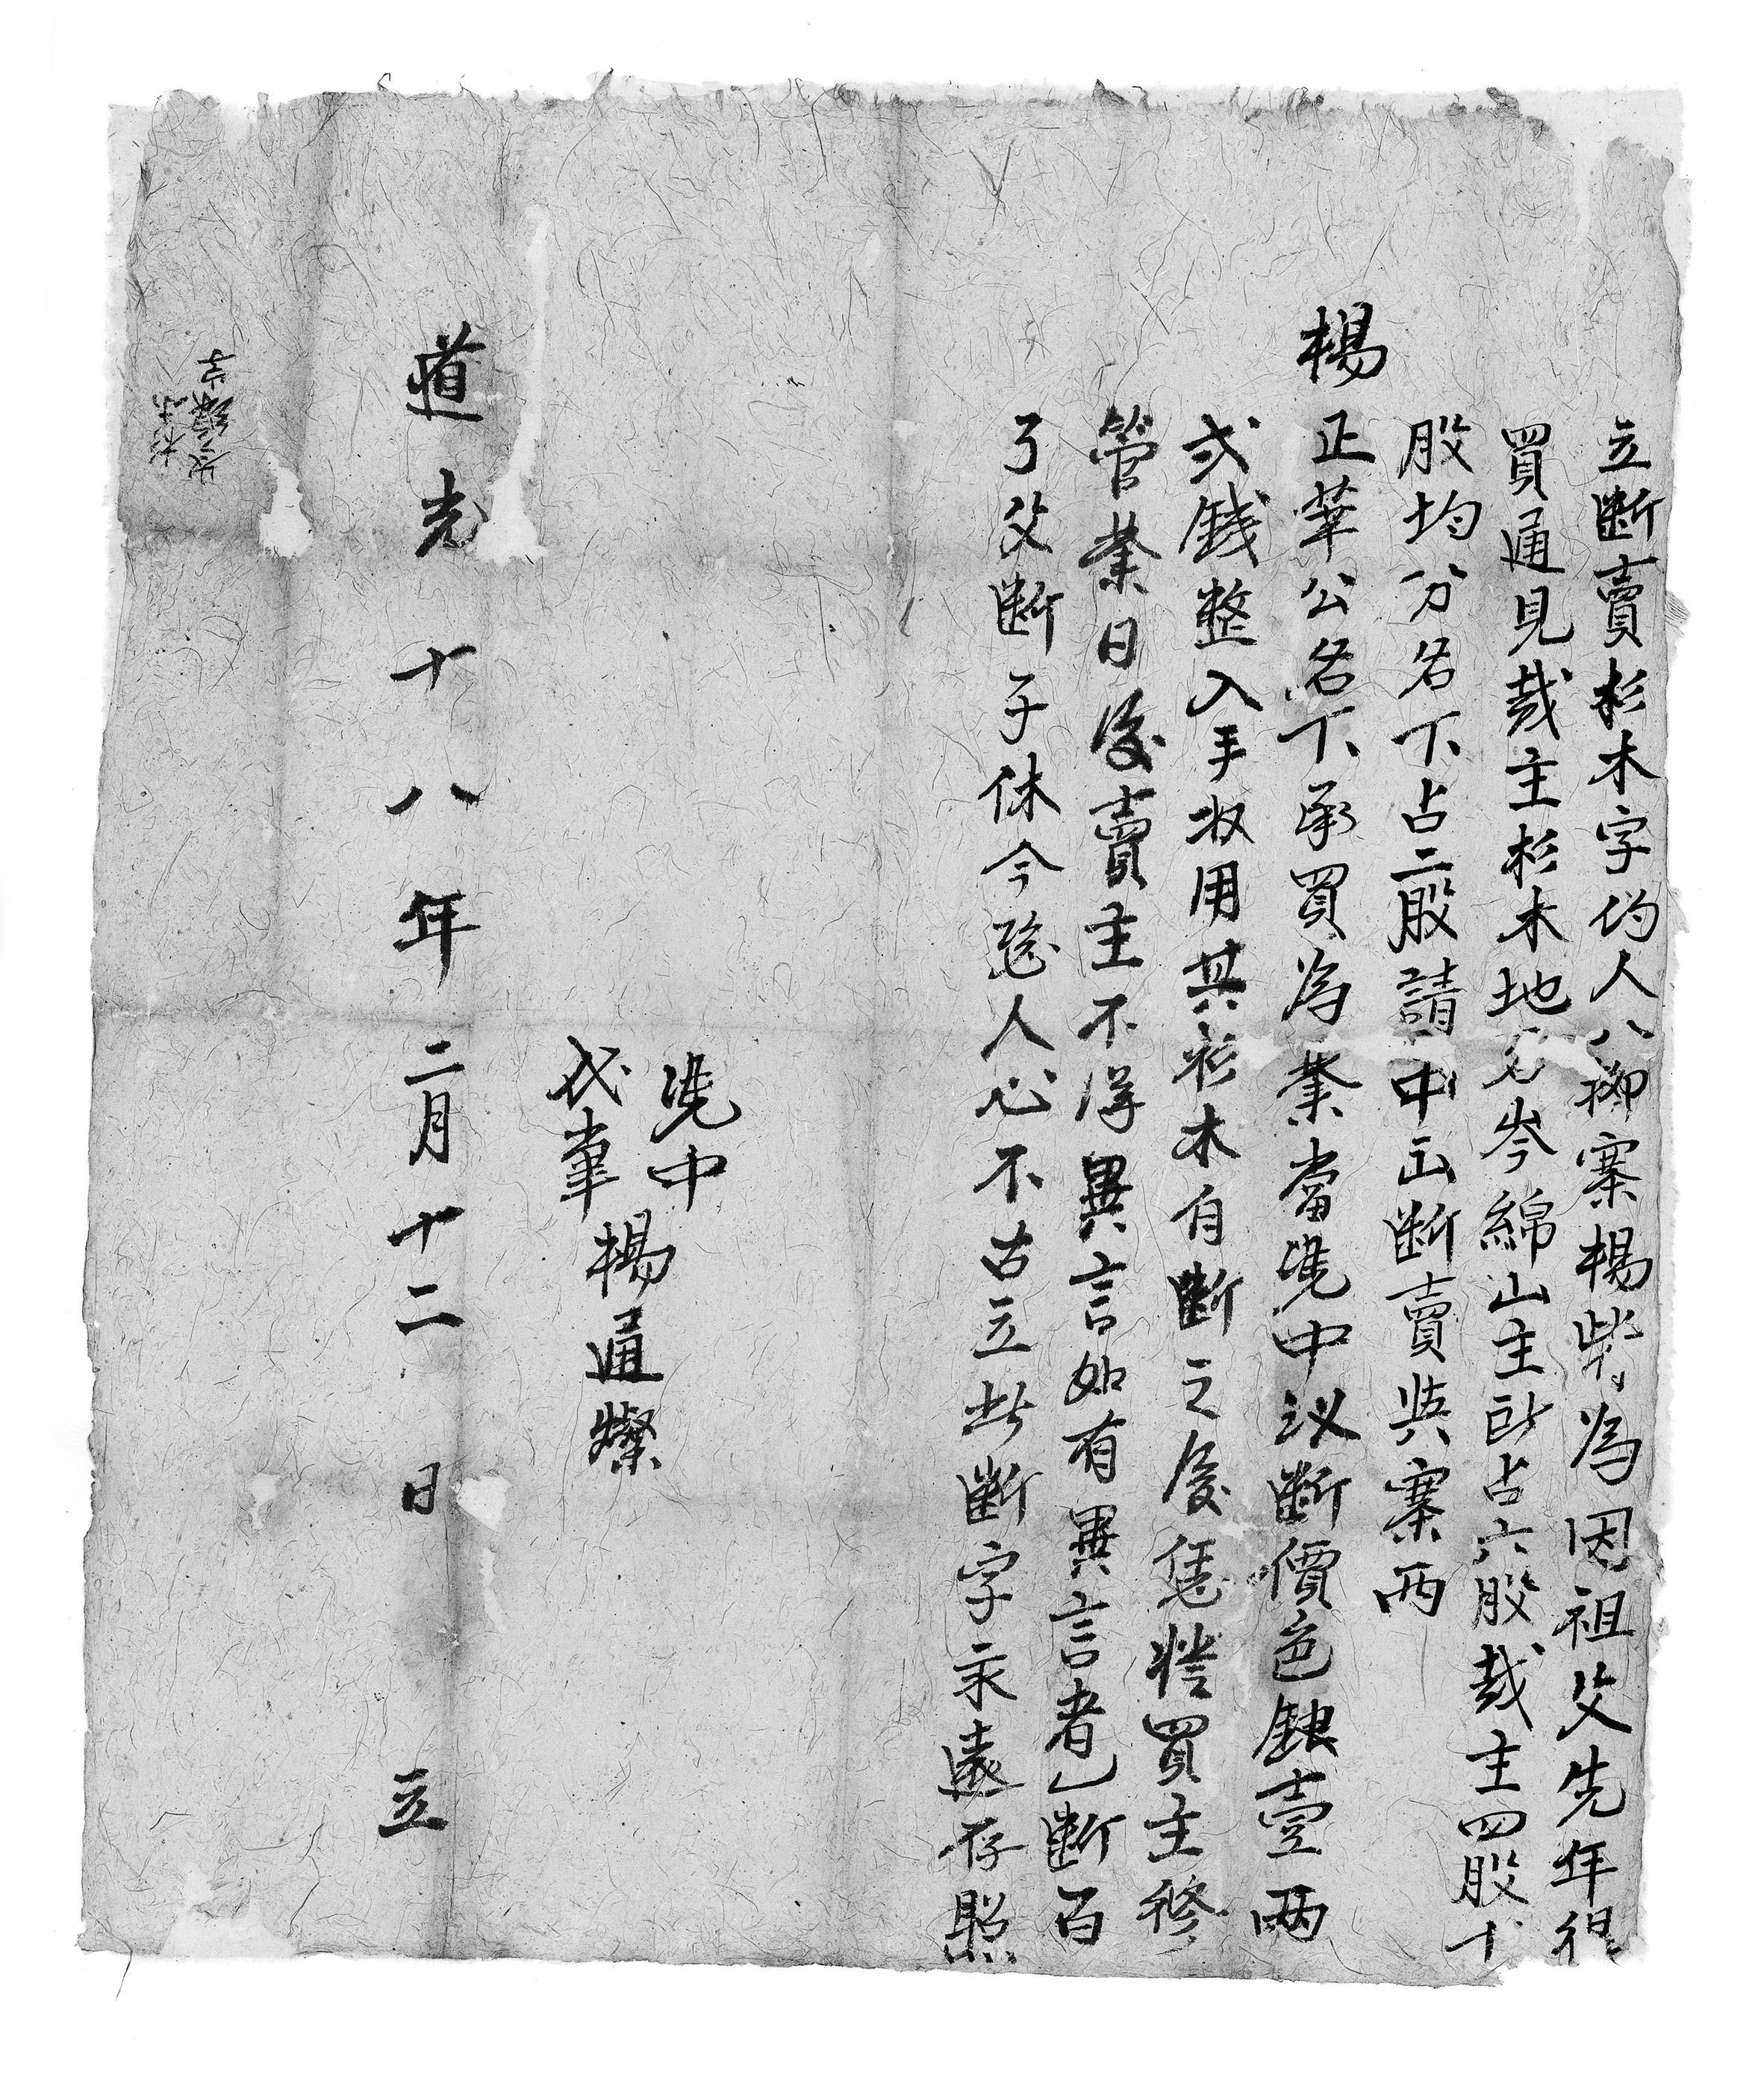 立断賣杉木字约人八柳寨楊柴為因祖父先年得
買通見栽主杉木地名岑綿山主所占六股栽主四股十
股均分名下占二股請中出断賣與寨兩
楊正華公名下承買為業當凴中议断價色銀壹两
弍錢整入手收用其杉木自断之後凭惜買主修
管業日後賣主不得異言如有異言者乚断百
了父断子休今恐人心不古立此断字永遠存照
凴中
代筆 楊通燦
道光十八年二月十二日 立
岑綿字
杉木